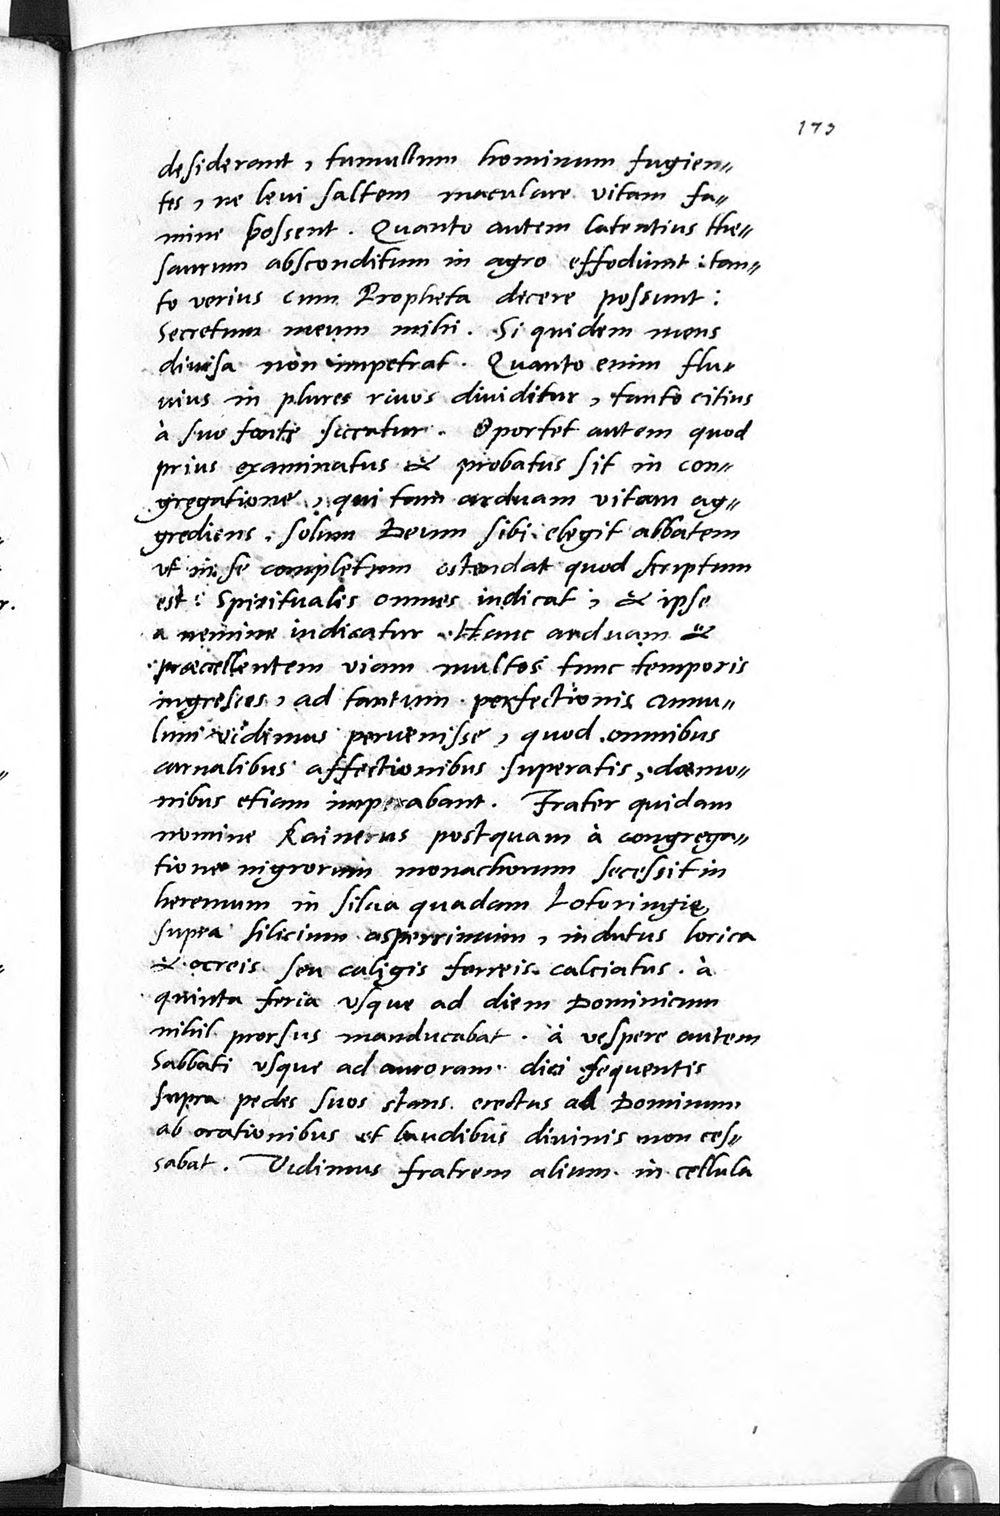 173
desiderant, tumultum hominum fugien〃
tes, ne leui saltem maculare vitam fa〃
mine possent. Quanto autem latentius the〃
saurum absconditum in agro effodiunt: tan〃
to verius cum Propheta dicere possunt:
Secretum meum mihi. Si quidem mens
diuisa non impetrat. Quanto enim flu〃
uius in plures riuos diuiditur, tanto citius
à suo fonte siccatur. Oportet autem quod
prius examinatus & probatus sit in con〃
gregatione, qui tam arduam vitam ag〃
grediens, solum Deum sibi elegit abbatem
vt in se completum ostendat quod scriptum
est: Spiritualis omnes iudicat, & ipse
a nemine iudicatur. Hanc arduam &
præcellentem viam multos tunc temporis
ingressos, ad tantum perfectionis cumu〃
lum vidimus peruenisse, quod omnibus
carnalibus affectionibus superatis, dæmo〃
nibus etiam imperabant. Frater quidam
nomine Rainerus postquam à congrega〃
tione nigrorum monachorum secessit in
heremum in silua quadam Lotoringię,
supra silicium asperrimum, indutus lorica
& ocreis seu caligis ferreis calciatus. à
quinta feria vsque ad diem Dominicum
nihil prorsus manducabat. à vespere autem
Sabbati vsque ad auroram diei sequentis
supra pedes suos stans erectus ad Dominum
ab orationibus et laudibus diuinis non ces〃
sabat. Vidimus fratrem alium in cellula